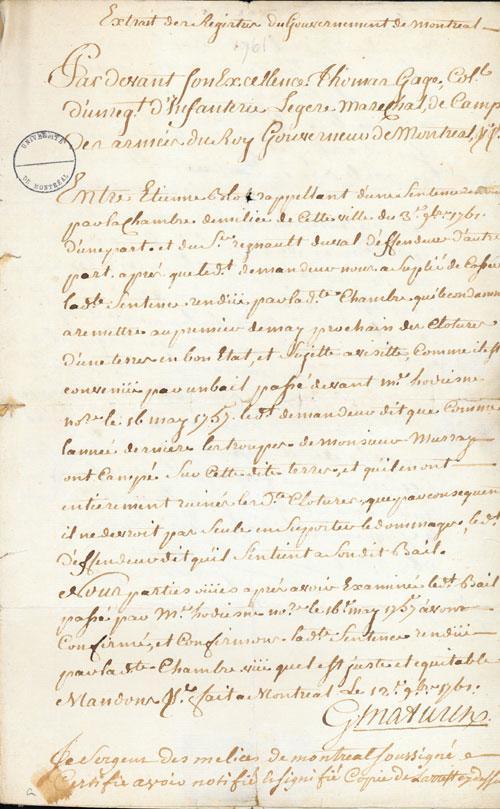 Extrait des Registres du Gouvernement de Montreal
1761
Par devant son Excellence Thomas Gage, Coll.
d'un reg.t d'Infanterie Legere Marechal de Camp
des armées du Roy Gouverneur de Montreal, &c.
UNIVERSITÉ
DE MONTRÉAL
Entre Etienne appellant d'une Sentence rendue
par la Chambre de milice de Cette ville du 3.e 9bre 1761
d'une part. et du S.r regnault duval deffendeur d'autre
part. aprés que led.t demandeur nous a Suplié de Casser
lad.te Sentence rendüe par lad.te Chambre qui le condamne
a remettre au premier de may prochain des Clotures
d'une terre en bon Etat, et Sujette a visitte Comme il est
convenüe par un bail passé devant m.e hodiesne
no.re le 16 may 1757. led.t demandeur dit que Comme
l'année derniere les troupes de monsieur Murray
ont Campé Sur Cette dite terre, et qu'ils en ont
entierement ruinés les d.tes Clotures, que par consequen
il ne devroit pas Seul en Supporter le dommage, led.t
deffendeur dit qu'il S'entient a Son dit Bail.
Nous parties oüies aprés avoir Examiné led.t Bail
passé par M.e hodiesne no.re le 16 may 1757 avons
Confirmé, et Confirmons lad.te Sentence rendüe
par lad.te Chambre qui est juste et equitable
Mandons &c. fait a Montreal Le 12.e 9bre 1761.
G Maturin
Le Sergeur des melices de montreal Soussigné
Certifie avoir notifié & Signifié Copie de